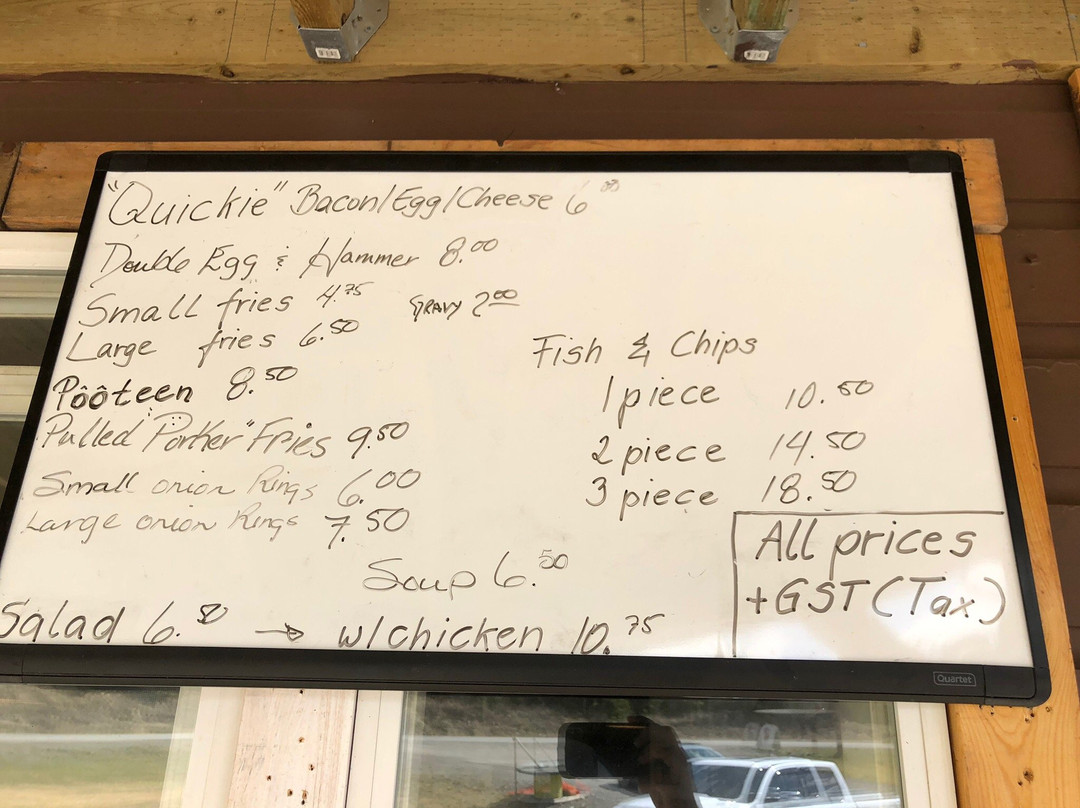 "Quickie" Bacon/Egg/Cheese 6
Double Egg & Hammer 8.00
Small fries 4.75 Gravy 2.00
Large fries 6.50
Pôôteen 8.50
Pulled "Porker" Fries 9.50
Small onion Rings 6.00
Large onion Rings 7.50
Soup 6.50
Salad 6. → w/chicken 10.75
Fish & Chips
1 piece 10.50
2 piece 14.50
3 piece 18.50
All prices
+GST (Tax)
Quartet